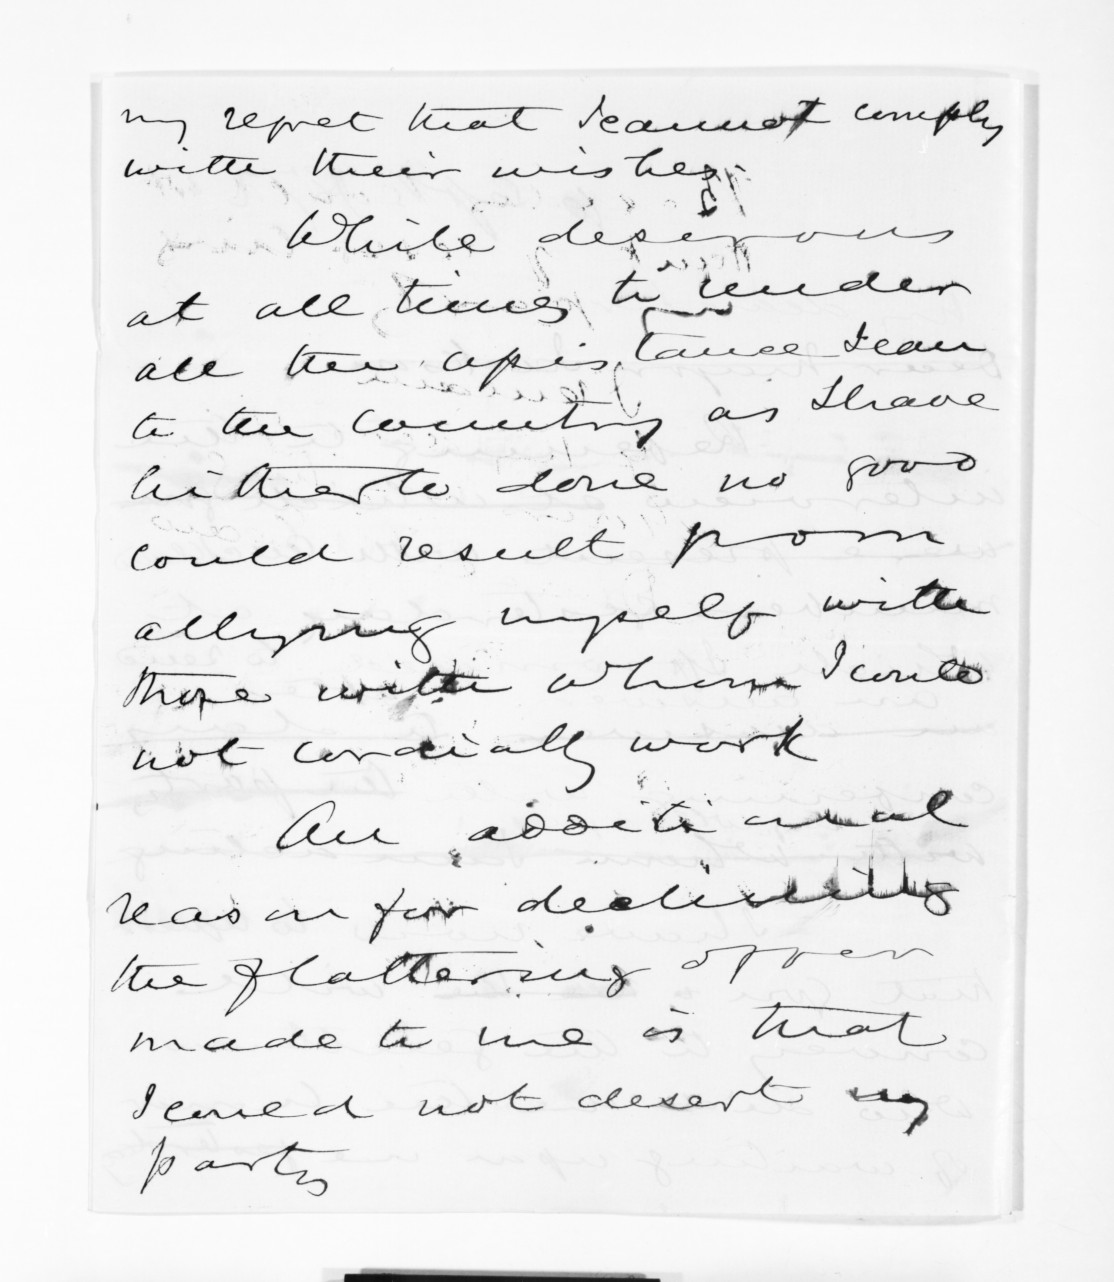 my regret that I cannot comply
with their wishes
While desirous
at all times to render
all the assistance I can
to the country as I have
hitherto done no good
could result from
allying myself with
those with whom I could
not cordially work
An additional
reason for declining
the flattering offer
made to me is that
I could not desert my
party